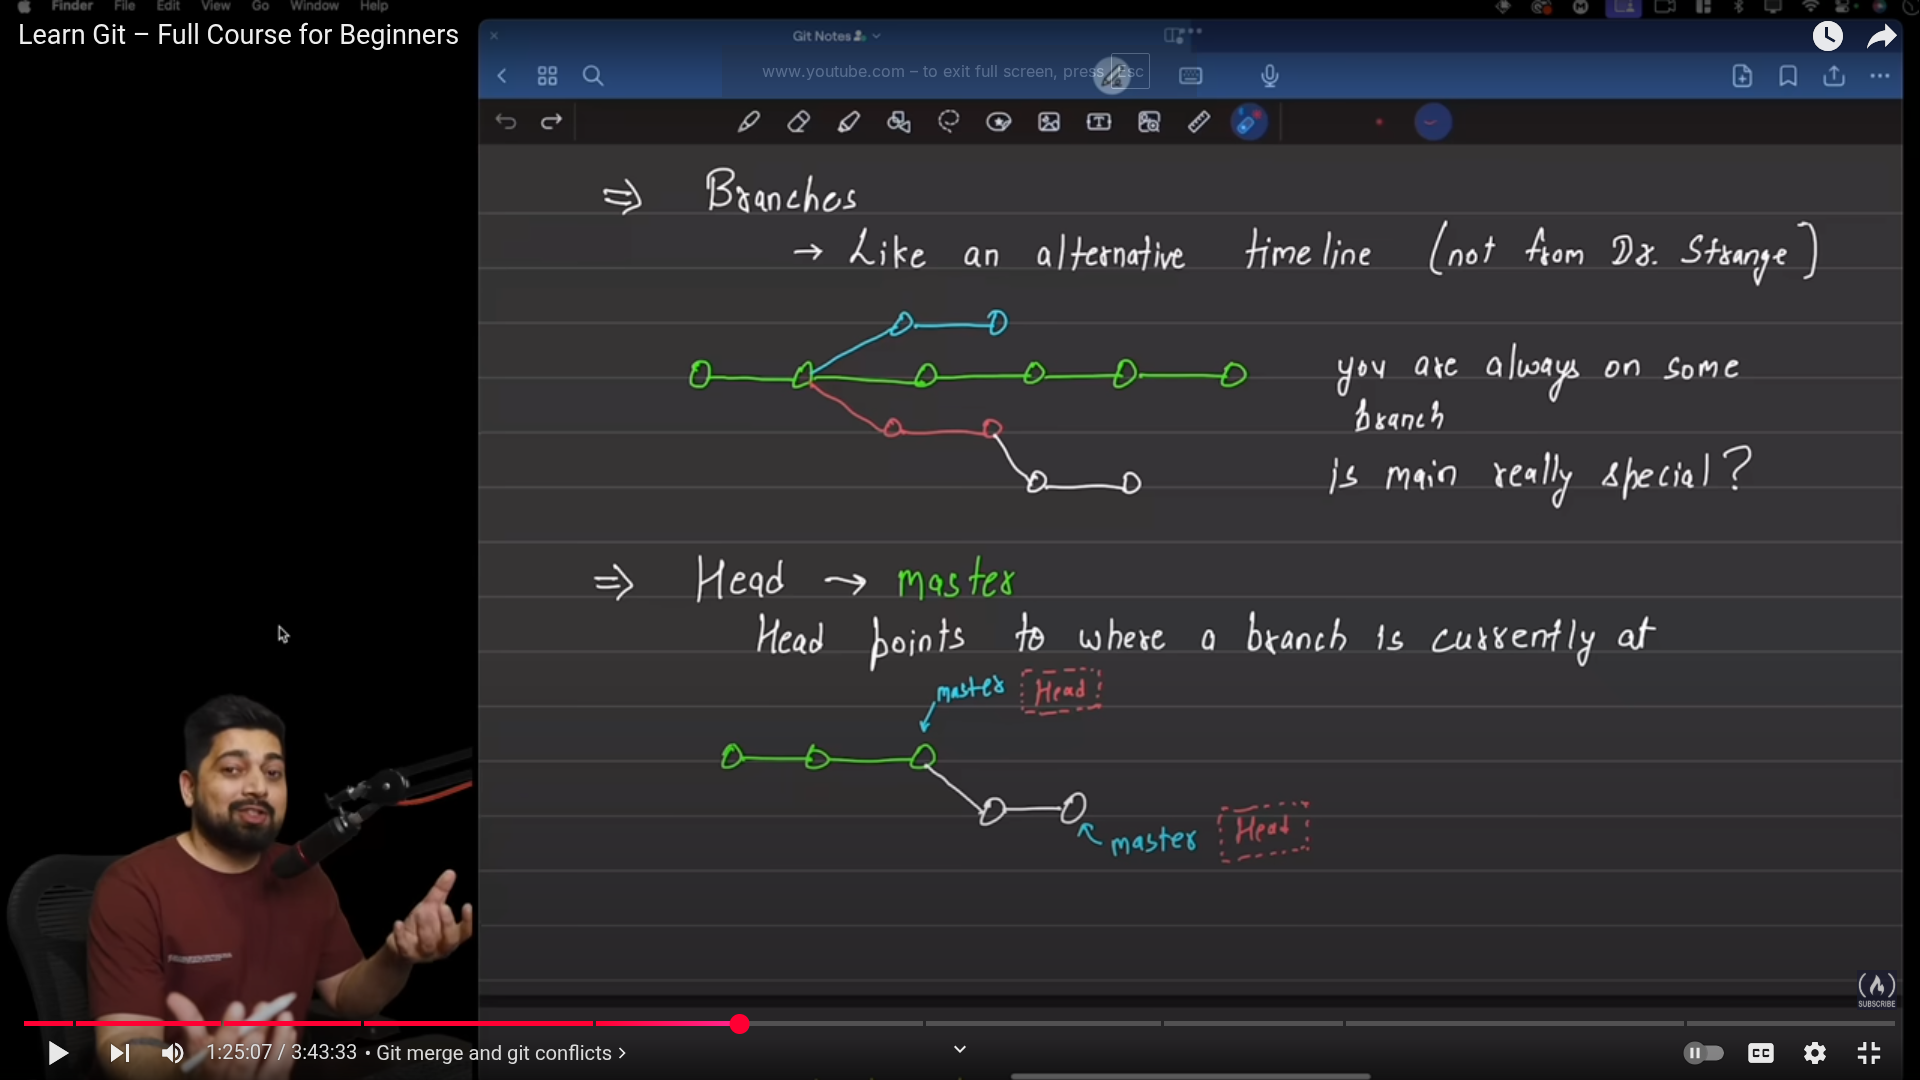 Finder File Edit View Go Window Help
Learn Git – Full Course for Beginners
Git Notes
www.youtube.com – to exit full screen, press Esc
⇒ Branches
→ Like an alternative timeline (not from Dr. Strange)
you are always on some
branch
is main really special?
⇒ Head → master
Head points to where a branch is currently at
master Head
master Head
SUBSCRIBE
1:25:07 / 3:43:33 • Git merge and git conflicts >
CC